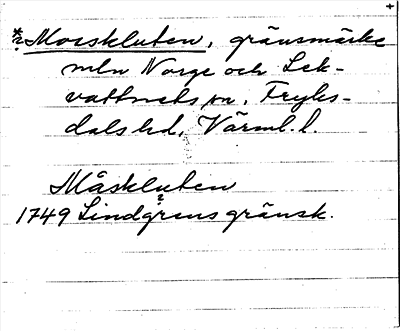 *Morskluten, gränsmärke
mln Norge och Lek-
vattnets sn. Fryks-
dals hd, Värml. l.
Måskluten
1749 Lindgrens gränsk.